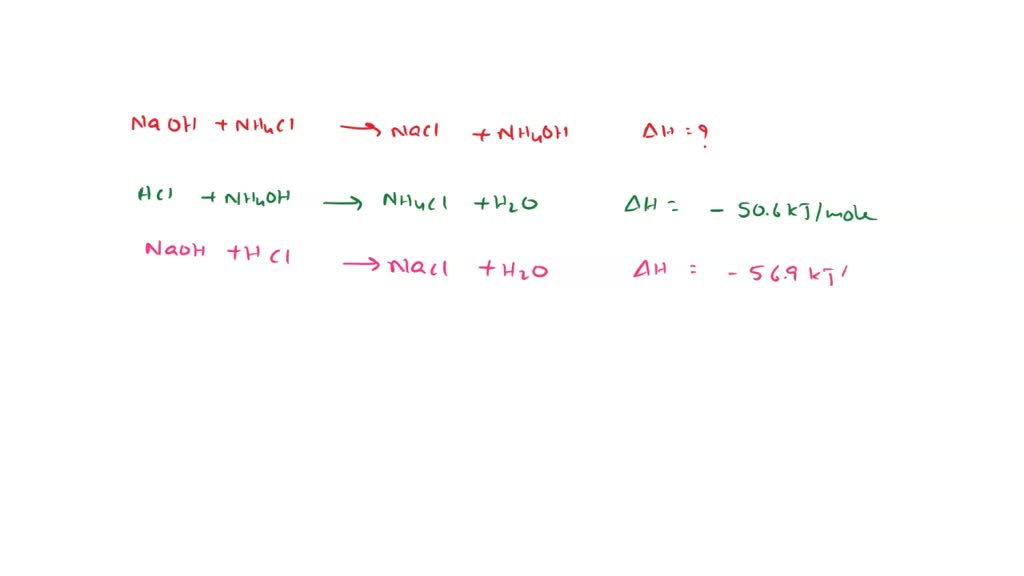 NaOH + NH4Cl → NaCl + NH4OH ΔH = ?
HCl + NH4OH → NH4Cl + H2O ΔH = - 50.6 kJ/mole
NaOH + HCl → NaCl + H2O ΔH = - 56.9 kJ/